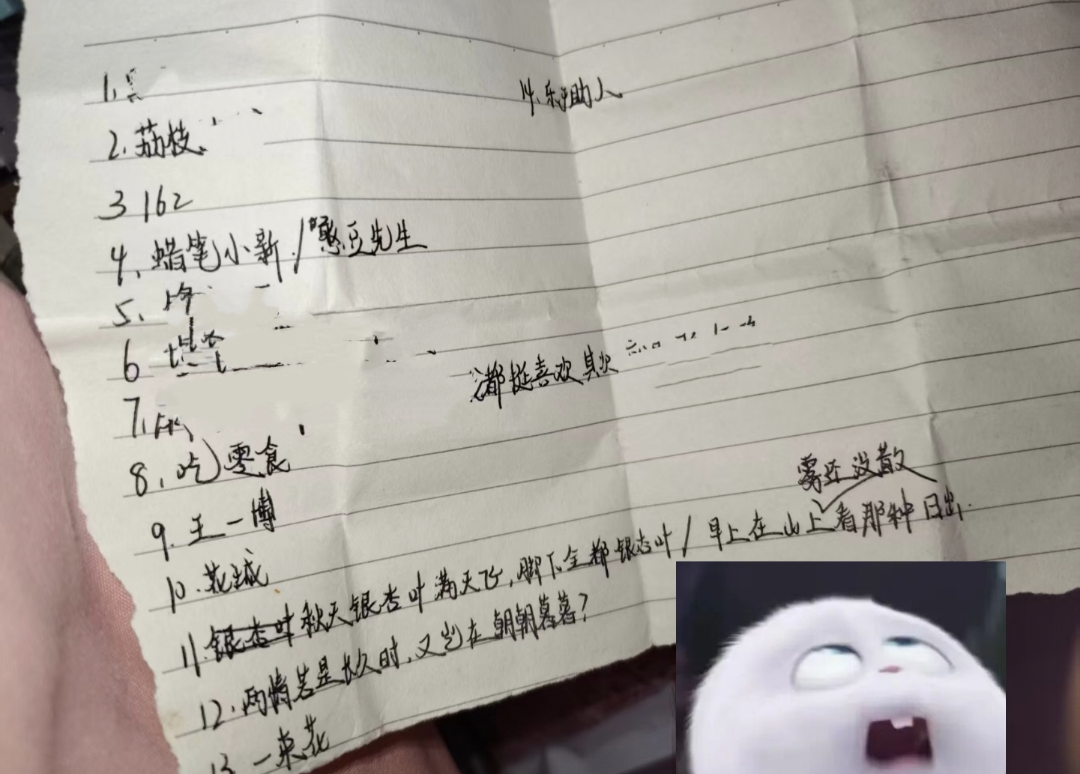 1.
14.乐于助人
2.荔枝
3 162
4.蜡笔小新/憨豆先生
5.
6
都挺喜欢其次
7.
8.吃零食
9.王一博
10.花城
雾还没散
11.银杏叶秋天银杏叶满天飞,脚下全都银杏叶/早上在山上看那种日出.
12.两情若是长久时,又岂在朝朝暮暮?
13 一束花